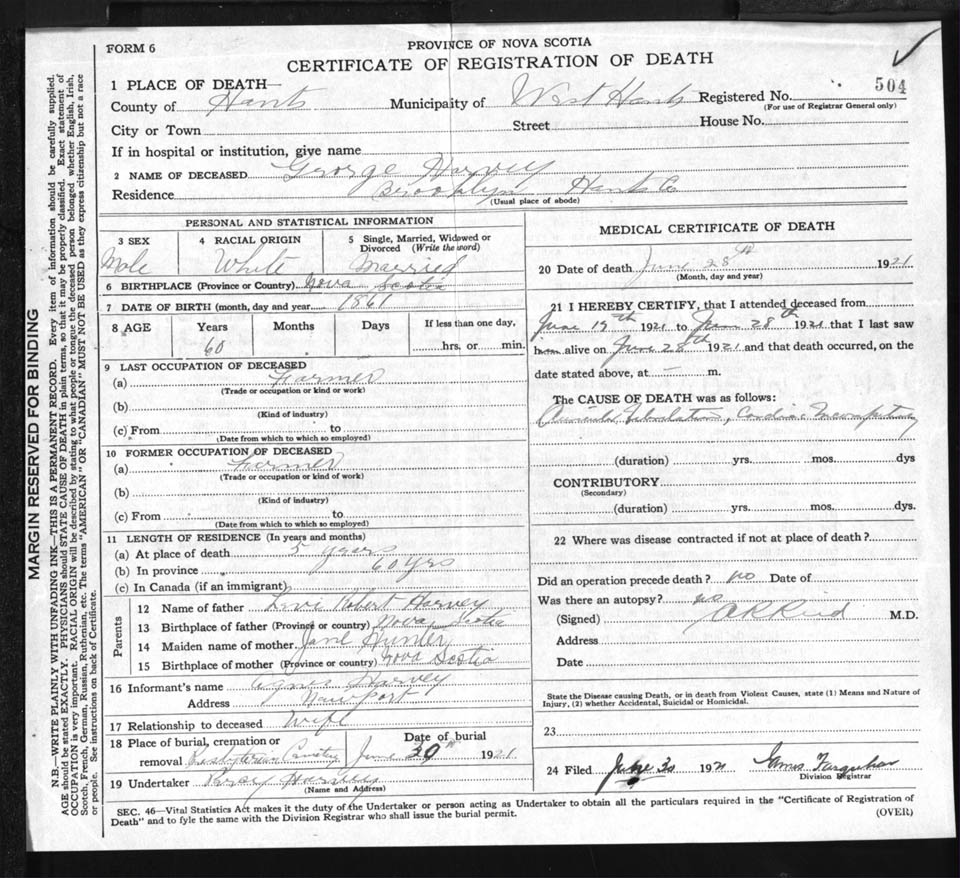 FORM 6
PROVINCE OF NOVA SCOTIA
CERTIFICATE OF REGISTRATION OF DEATH
504
1 PLACE OF DEATH—
County of Hants Municipality of West Hants Registered No.
(For use of Registrar General only)
City or Town Street House No.
If in hospital or institution, give name
2 NAME OF DECEASED George Harvey
Residence Brooklyn Hants Co
(Usual place of abode)
MARGIN RESERVED FOR BINDING
N.B.—WRITE PLAINLY WITH UNFADING INK—THIS IS A PERMANENT RECORD. Every item of information should be carefully supplied.
AGE should be stated EXACTLY. PHYSICIANS should STATE CAUSE OF DEATH in plain terms, so that it may be properly classified. Exact statement of
OCCUPATION is very important. RACIAL ORIGIN will be described by stating to what people or tongue the deceased person belonged whether English, Irish,
Scotch, French, German, Russian, Ruthenian, etc. The terms "AMERICAN" or "CANADIAN" MUST NOT BE USED as they express citizenship but not a race
or people. See instructions on back of Certificate.
PERSONAL AND STATISTICAL INFORMATION
3 SEX 4 RACIAL ORIGIN 5 Single, Married, Widowed or
Divorced (Write the word)
Male White Married
6 BIRTHPLACE (Province or Country) Nova Scotia
7 DATE OF BIRTH (month, day and year) 1861
8 AGE Years Months Days If less than one day,
60 hrs. or min.
9 LAST OCCUPATION OF DECEASED
(a) Farmer
(Trade or occupation or kind or work)
(b)
(Kind of industry)
(c) From to
(Date from which to which so employed)
10 FORMER OCCUPATION OF DECEASED
(a) Farmer
(Trade or occupation or kind of work)
(b)
(Kind of industry)
(c) From to
(Date from which to which so employed)
11 LENGTH OF RESIDENCE (In years and months)
(a) At place of death 5 years
(b) In province 60 yrs
(c) In Canada (if an immigrant)
Parents
12 Name of father Robert Harvey
13 Birthplace of father (Province or country) Nova Scotia
14 Maiden name of mother Jane Hunter
15 Birthplace of mother (Province or country) Nova Scotia
16 Informant's name Agnes Harvey
Address Newport
17 Relationship to deceased Wife
18 Place of burial, cremation or Date of burial
removal Presbyterian Cemetery June 30th 1921
19 Undertaker Percy
(Name and Address)
MEDICAL CERTIFICATE OF DEATH
20 Date of death June 28th 1921
(Month, day and year)
21 I HEREBY CERTIFY, that I attended deceased from
June 19th 1921 to June 28th 1921 that I last saw
him alive on June 28th 1921 and that death occurred, on the
date stated above, at — m.
The CAUSE OF DEATH was as follows:
Cardiac
(duration) yrs. mos. dys
CONTRIBUTORY
(Secondary)
(duration) yrs. mos. dys.
22 Where was disease contracted if not at place of death?
Did an operation precede death? no Date of
Was there an autopsy? no
(Signed) Reid M.D.
Address
Date
State the Disease causing Death, or in death from Violent Causes, state (1) Means and Nature of
Injury, (2) whether Accidental, Suicidal or Homicidal.
23
24 Filed June 30 1921 Farquhar
Division Registrar
SEC. 46—Vital Statistics Act makes it the duty of the Undertaker or person acting as Undertaker to obtain all the particulars required in the "Certificate of Registration of
Death" and to fyle the same with the Division Registrar who shall issue the burial permit.
(OVER)